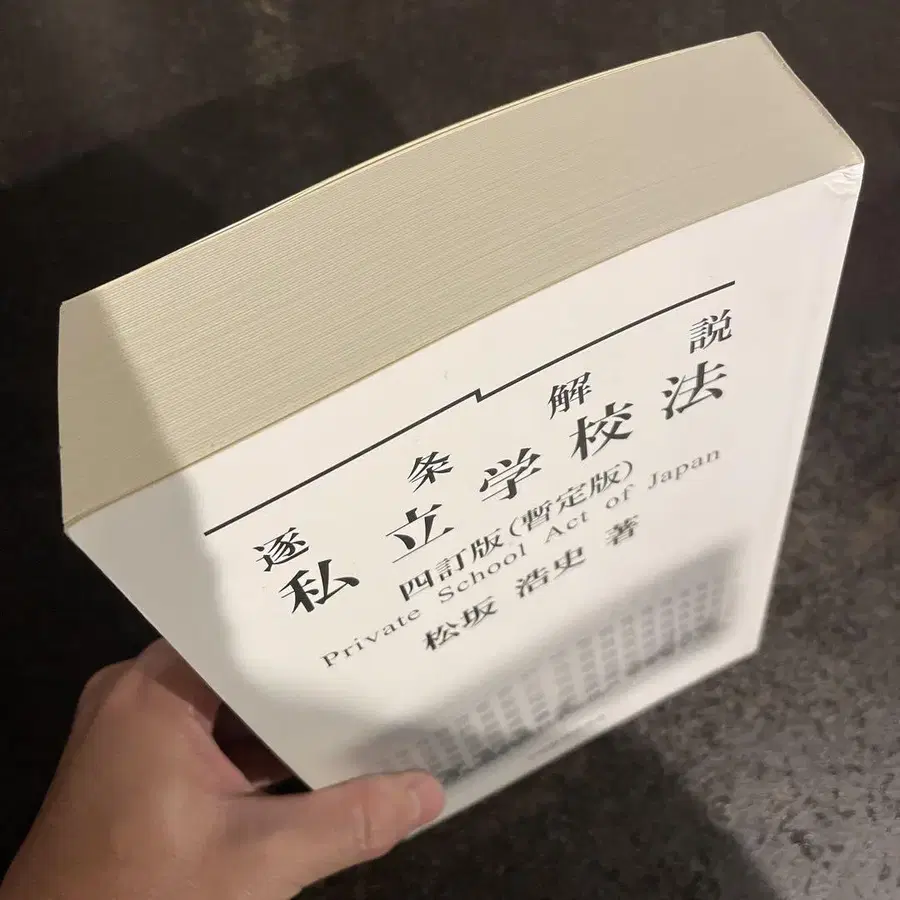 逐条解説
私立学校法
四訂版(暫定版)
Private School Act of Japan
松坂 浩史 著